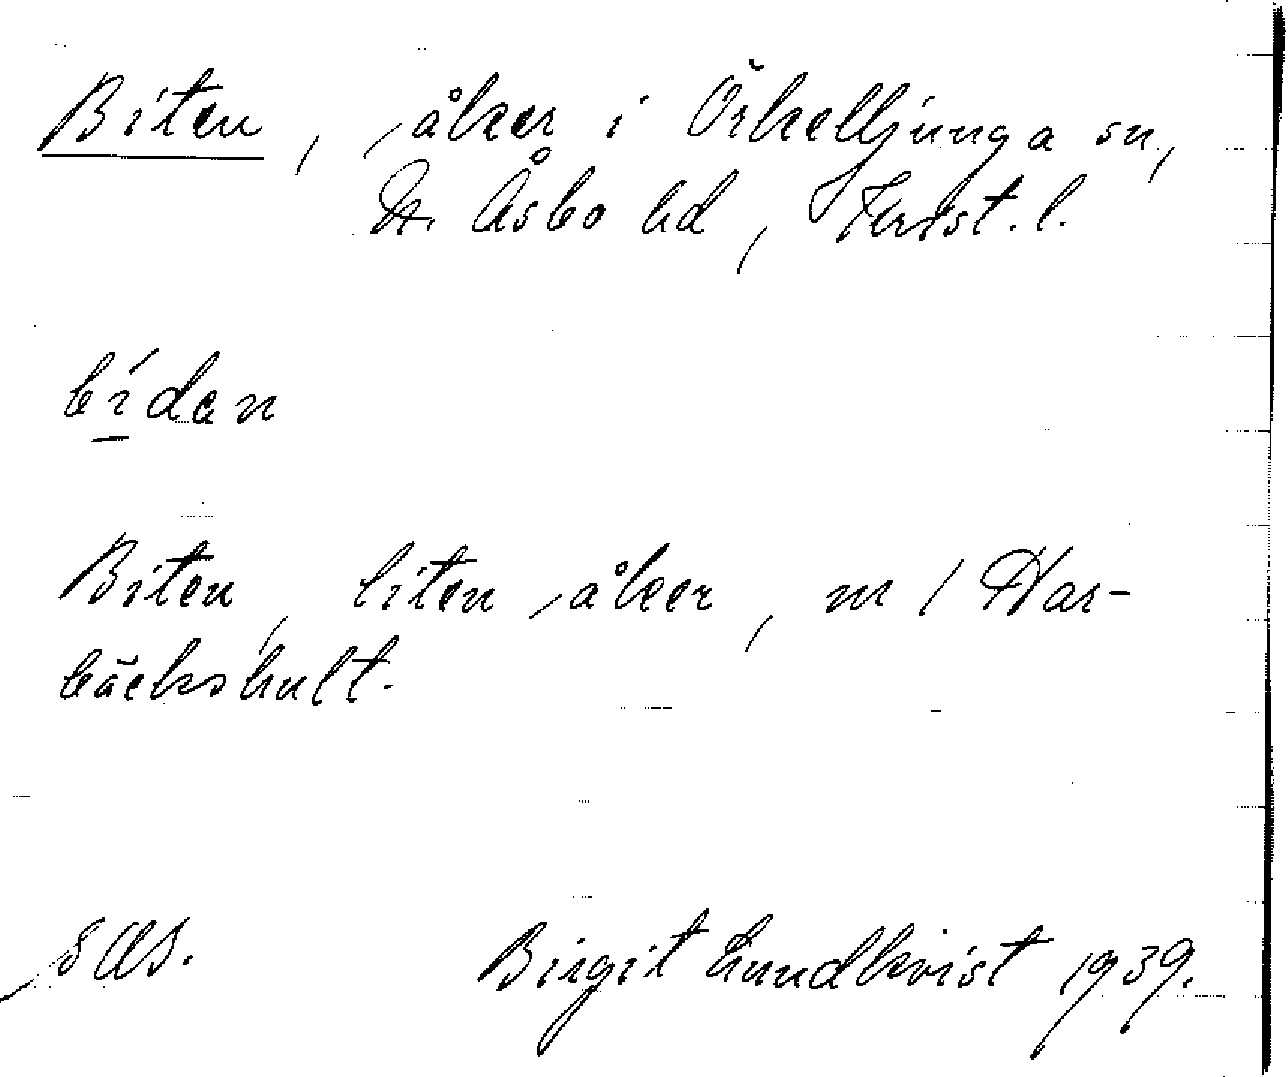 Biten, åker i Örkelljunga sn,
N. Åsbo hd, Krist. l.
bídan
Biten, liten åker, m / Har-
bäckshult.
Birgit Lundkvist 1939.